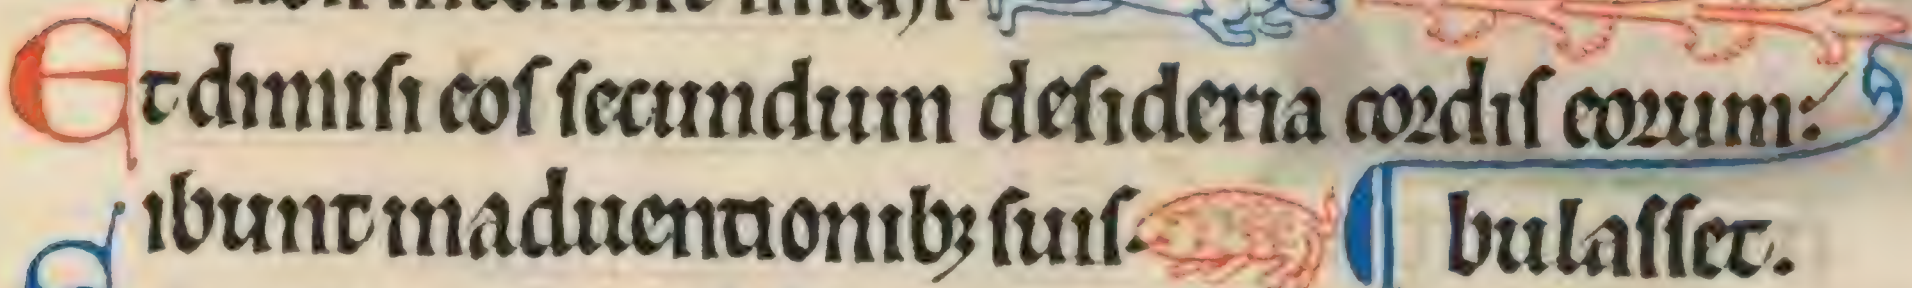 Et dimiſi eoſ ſecundum deſideria cordiſ eorum:
ibunt in aduentionibꝫ ſuiſ. bulaſſet.